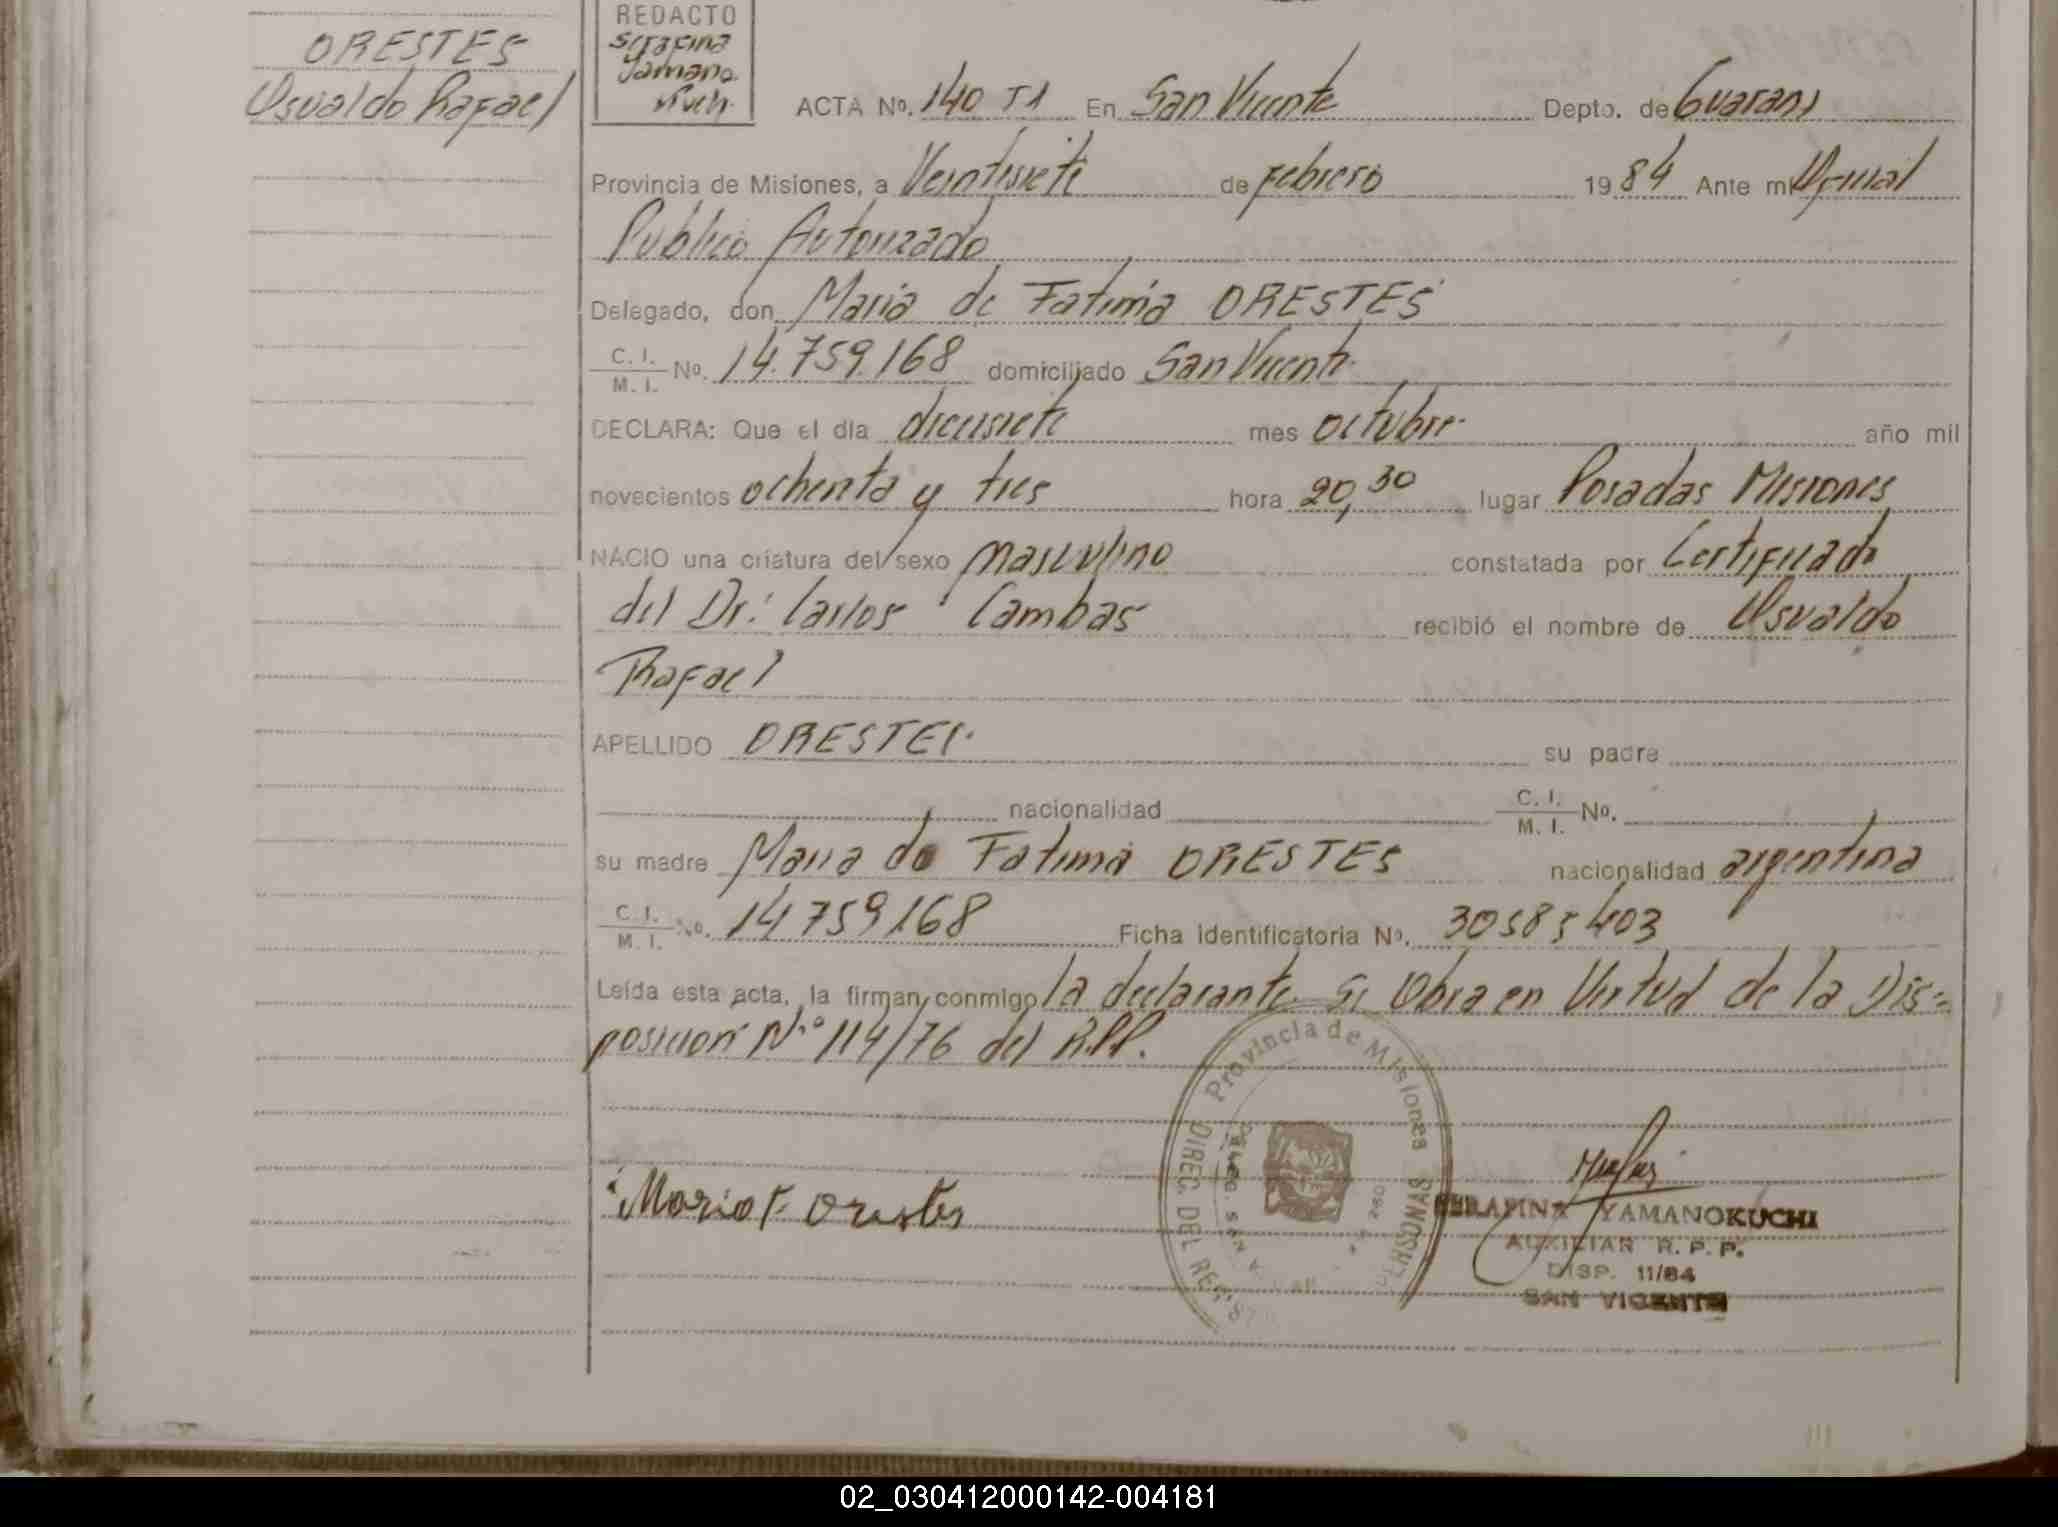 ORESTES
Osvaldo Rafael
REDACTO
Serafina
Yamano
kuchi.
ACTA Nº. 140 T1 En San Vicente Depto. de Guarani
Provincia de Misiones, a Veintisiete de febrero 1984 Ante mi Oficial
Publico Autorizado
Delegado, don Maria de Fatima ORESTES
C. I. / M. I. Nº. 14.759.168 domiciliado San Vicente
DECLARA: Que el día diecisiete mes octubre año mil
novecientos ochenta y tres hora 20,30 lugar Posadas Misiones
NACIO una criatura del sexo masculino constatada por Certificado
del Dr: Carlos Cambas recibió el nombre de Osvaldo
Rafael
APELLIDO ORESTES. su padre
nacionalidad C. I. / M. I. Nº.
su madre Maria de Fatima ORESTES nacionalidad argentina
C. I. / M. I. Nº. 14759168 Ficha identificatoria Nº. 30585403
Leída esta acta, la firman conmigo la declarante. Se Obra en Virtud de la Dis=
posicion N° 114/76 del R.P.P.
Provincia de Misiones
DIREC. DEL REG. PERSONAS
DELEG. SAN
Maria F. Orestes
SERAFINA YAMANOKUCHI
AUXILIAR R. P. P.
DISP. 11/84
SAN VICENTE
02_030412000142-004181